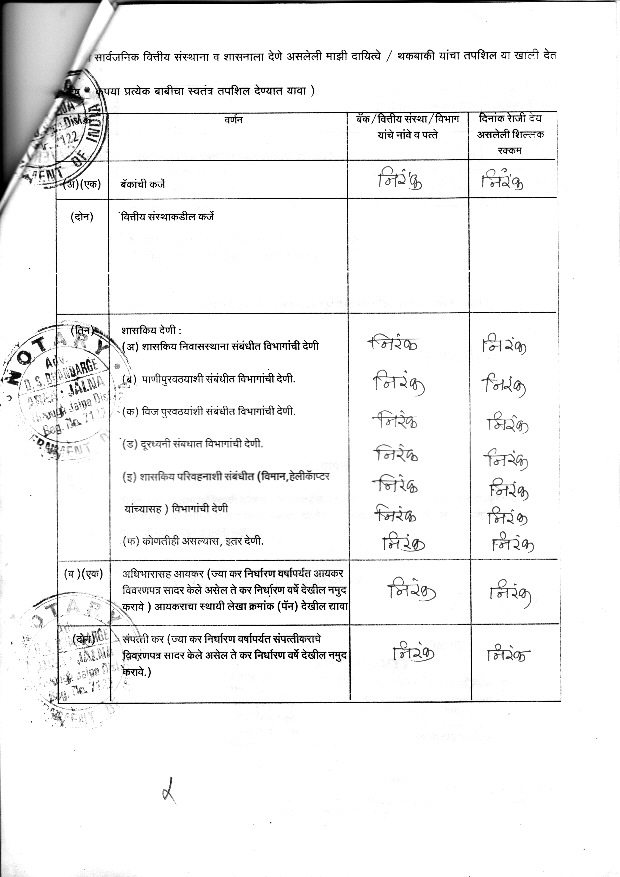 सार्वजनिक वित्तीय संस्थाना व शासनाला देणे असलेली माझी दायित्वे / थकबाकी यांचा तपशिल या खाली देत
प्रत्येक बाबीचा स्वतंत्र तपशिल देण्यात यावा )
वर्णन बॅक/वित्तीय संस्था/विभाग दिनांक रोजी देय
यांचे नांवे व पत्ते असलेली शिल्लक
रक्कम
(अ)(एक) बॅकांची कर्जे निरंक निरंक
(दोन) वित्तीय संस्थाकडील कर्जे
(तिन) शासकिय देणी :
(अ) शासकिय निवासस्थाना संबंधीत विभागांची देणी निरंक निरंक
(ब) पाणीपुरवठयाशी संबंधीत विभागांची देणी. निरंक निरंक
(क) विज पुरवठयांशी संबंधीत विभागांची देणी. निरंक निरंक
(ड) दूरध्वनी संबधात विभागांची देणी. निरंक निरंक
(इ) शासकिय परिवहनाशी संबंधीत (विमान,हेलीकॅाप्टर निरंक निरंक
यांच्यासह ) विभागांची देणी निरंक निरंक
(फ) कोणतीही असल्यास, इतर देणी. निरंक निरंक
(ब )(एक) अधिभारासह आयकर (ज्या कर निर्धारण वर्षापर्यत आयकर
विवरणपत्र सादर केले असेल ते कर निर्धारण वर्षे देखील नमुद निरंक निरंक
करावे ) आयकराचा स्थायी लेखा क्रमांक (पॅन) देखील द्यावा
(दोन) संपत्ती कर (ज्या कर निर्धारण वर्षापर्यत संपत्तीकराचे
विवरणपत्र सादर केले असेल ते कर निर्धारण वर्षे देखील नमुद निरंक निरंक
करावे.)
NOTARY
Adv.
JALNA